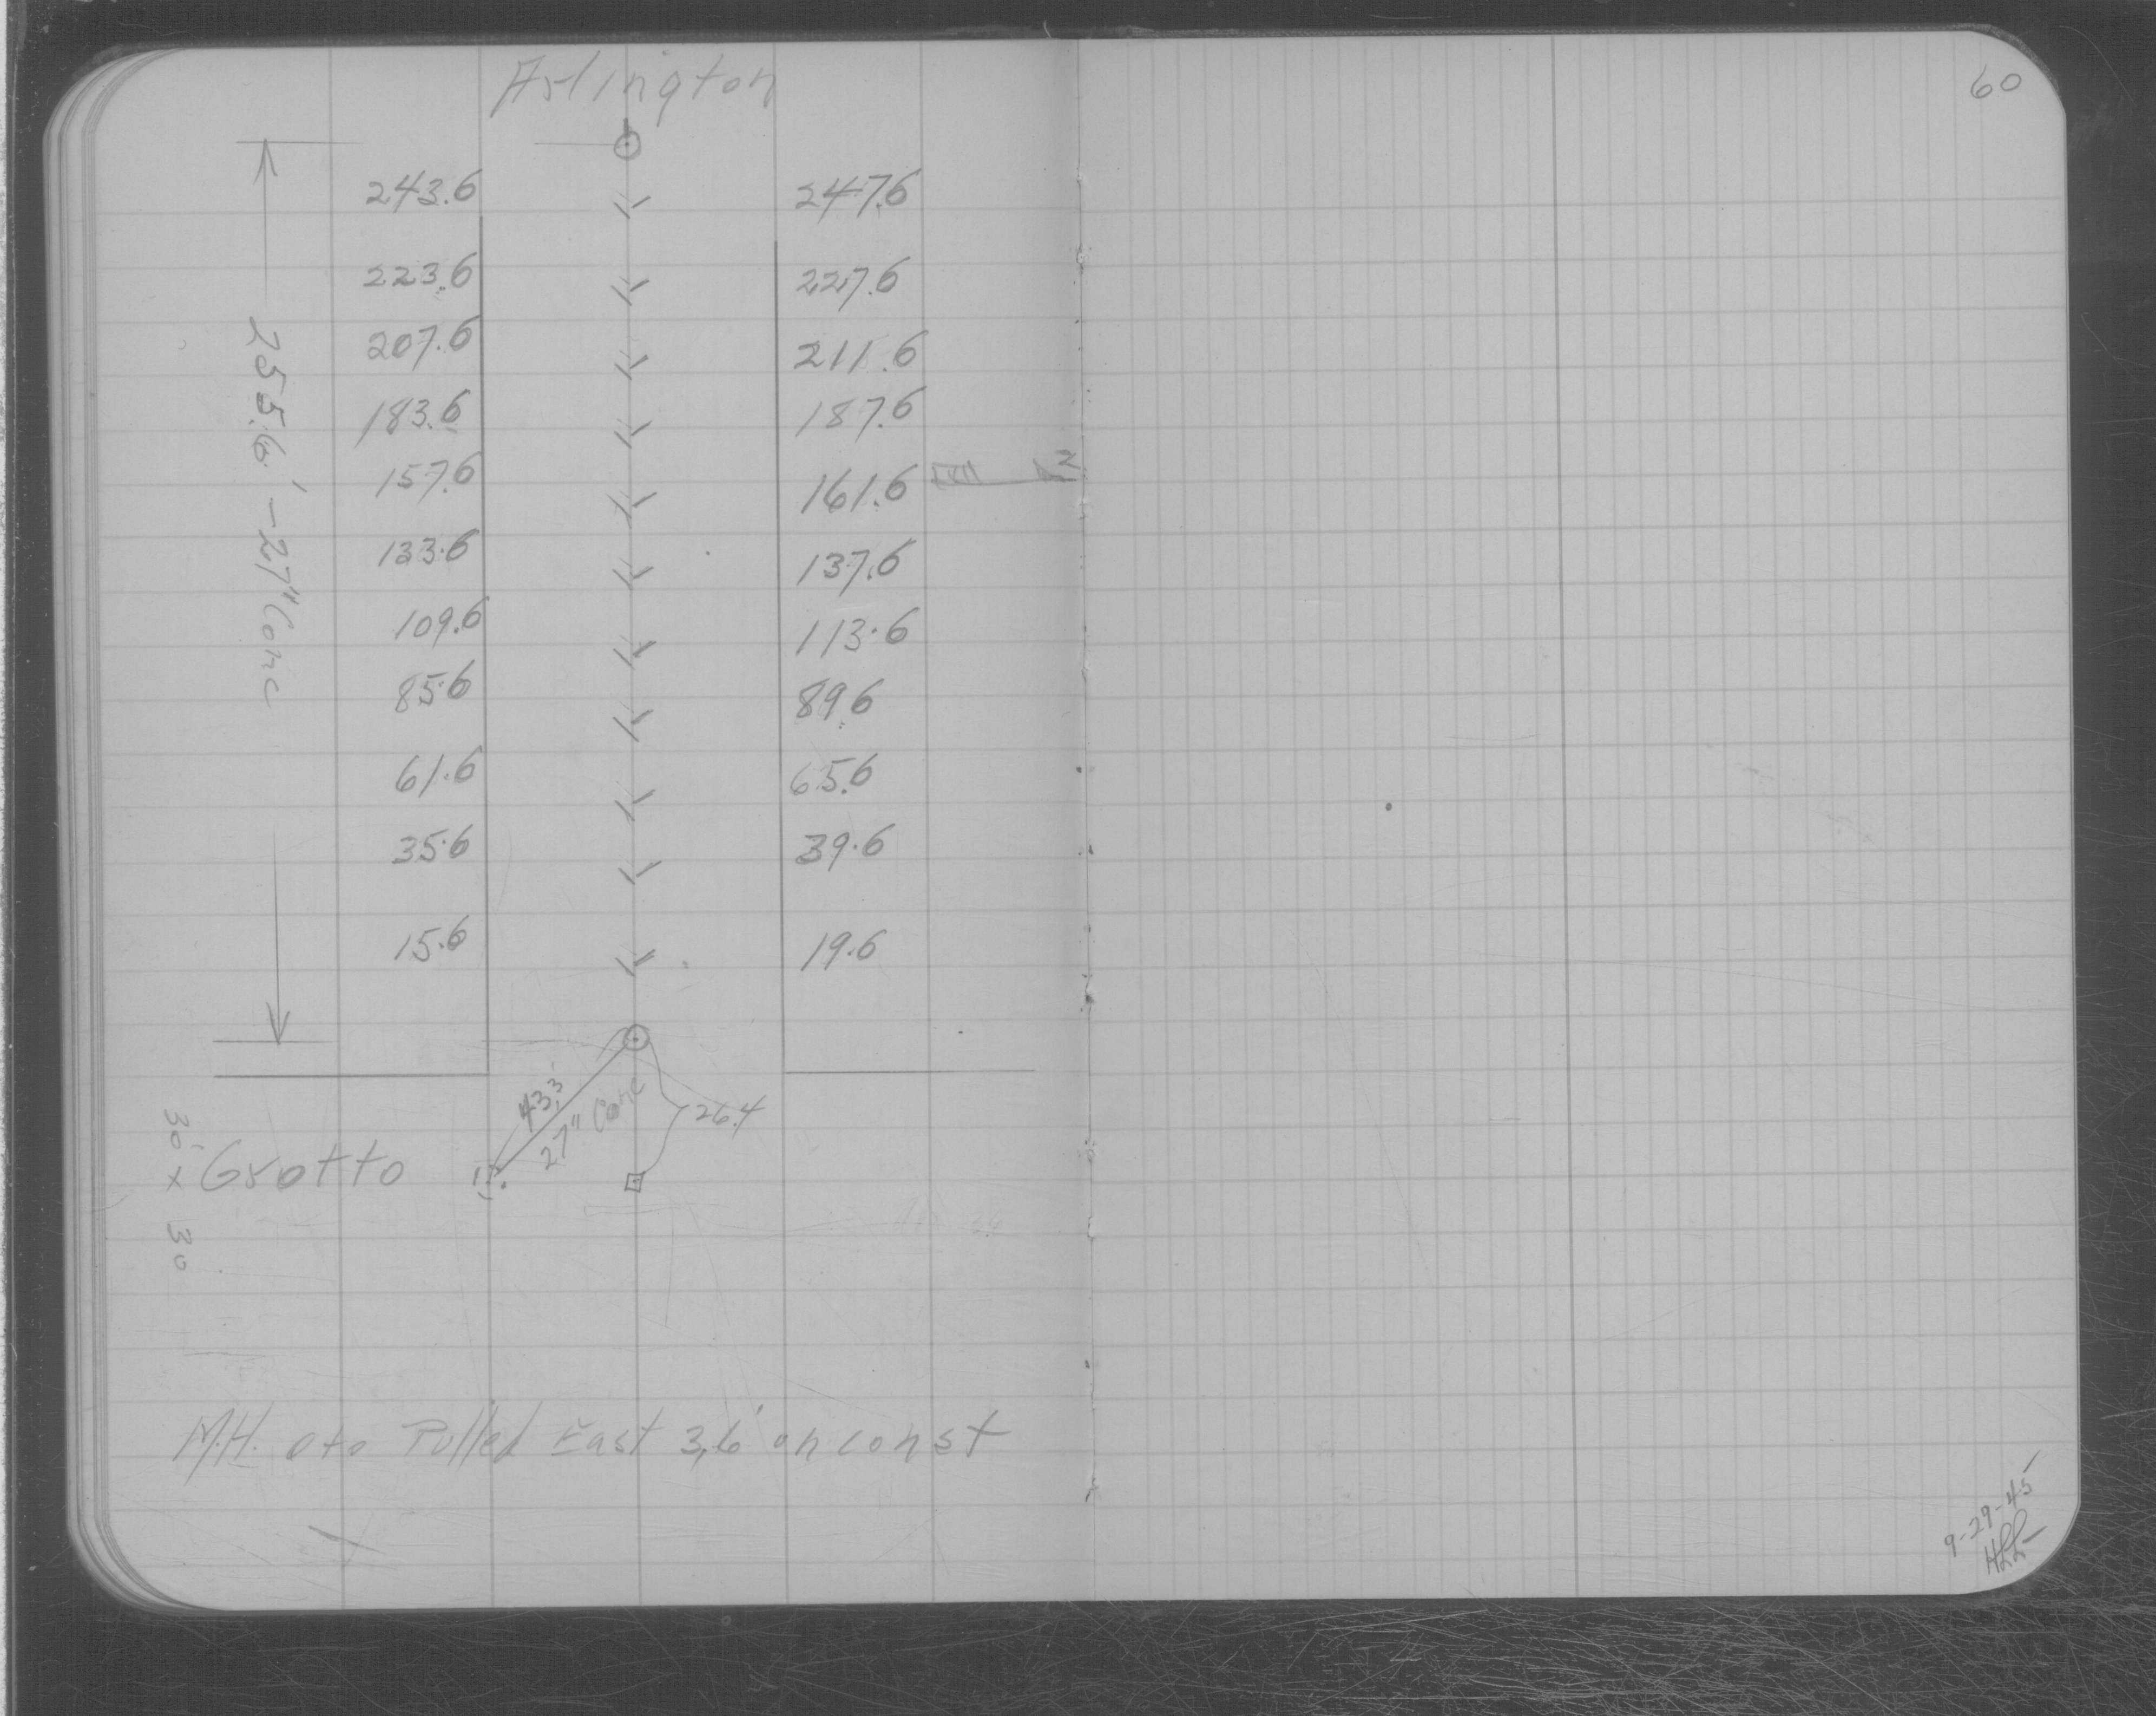 Arlington
60
243.6 247.6
223.6 227.6
207.6 211.6
183.6 187.6
157.6 161.6
N
133.6 137.6
109.6 113.6
85.6 89.6
61.6 65.6
35.6 39.6
15.6 19.6
255.6' - 27" Conc
43.3'
27" Conc
26.4
Grotto
30' x 30
M.H. 0+0 Pulled East 3.6' on const
9-29-45